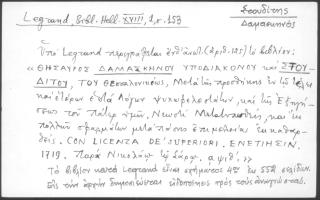 Legrand, Bibl. Hell. XVIII, 1, σ. 153
Στουδίτης
Δαμασκηνός
Ὑπὸ Legrand περιγράφεται (ἀριθ. 125) τὸ βιβλίον:
«ΘΗΣΑΥΡΟΣ ΔΑΜΑΣΚΗΝΟΥ ΥΠΟΔΙΑΚΟΝΟΥ ΚΑΙ ΣΤΟΥ-
ΔΙΤΟΥ, ΤΟΥ Θεσσαλονικέως, Μετὰ τῆς προσθήκης ἐν τῷ τέλει
καὶ ἑτέρων ἑπτὰ Λόγων ψυχωφελεστάτων, καὶ τῆς Ἐξηγή-
σεως τοῦ Πάτερ ἡμῶν, Νεωστὶ Μετατυπωθεὶς, καὶ ἐκ
πολλῶν σφαλμάτων μετὰ πάσης ἐπιμελείας ἐκκαθαρ-
θείς. CON LICENZA DE' SUPERIORI. ΕΝΕΤΙΗΣΙΝ.
1719. Παρὰ Νικολάῳ τῷ Σάρῳ. αψιθ'.»
Τὸ βιβλίον κατὰ Legrand εἶναι σχήματος 4ου ἐκ σελίδων.
Εἰς τὴν ἀρχὴν πρὸς τοὺς ἀναγνώστας.